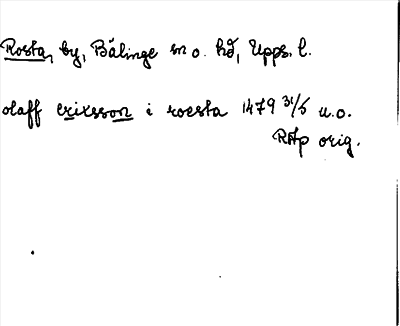 Rosta, by, Bälinge sn o. hd, Upps. l.
olaff erixsson i roesta 1479 31/5 u.o.
RAp orig.